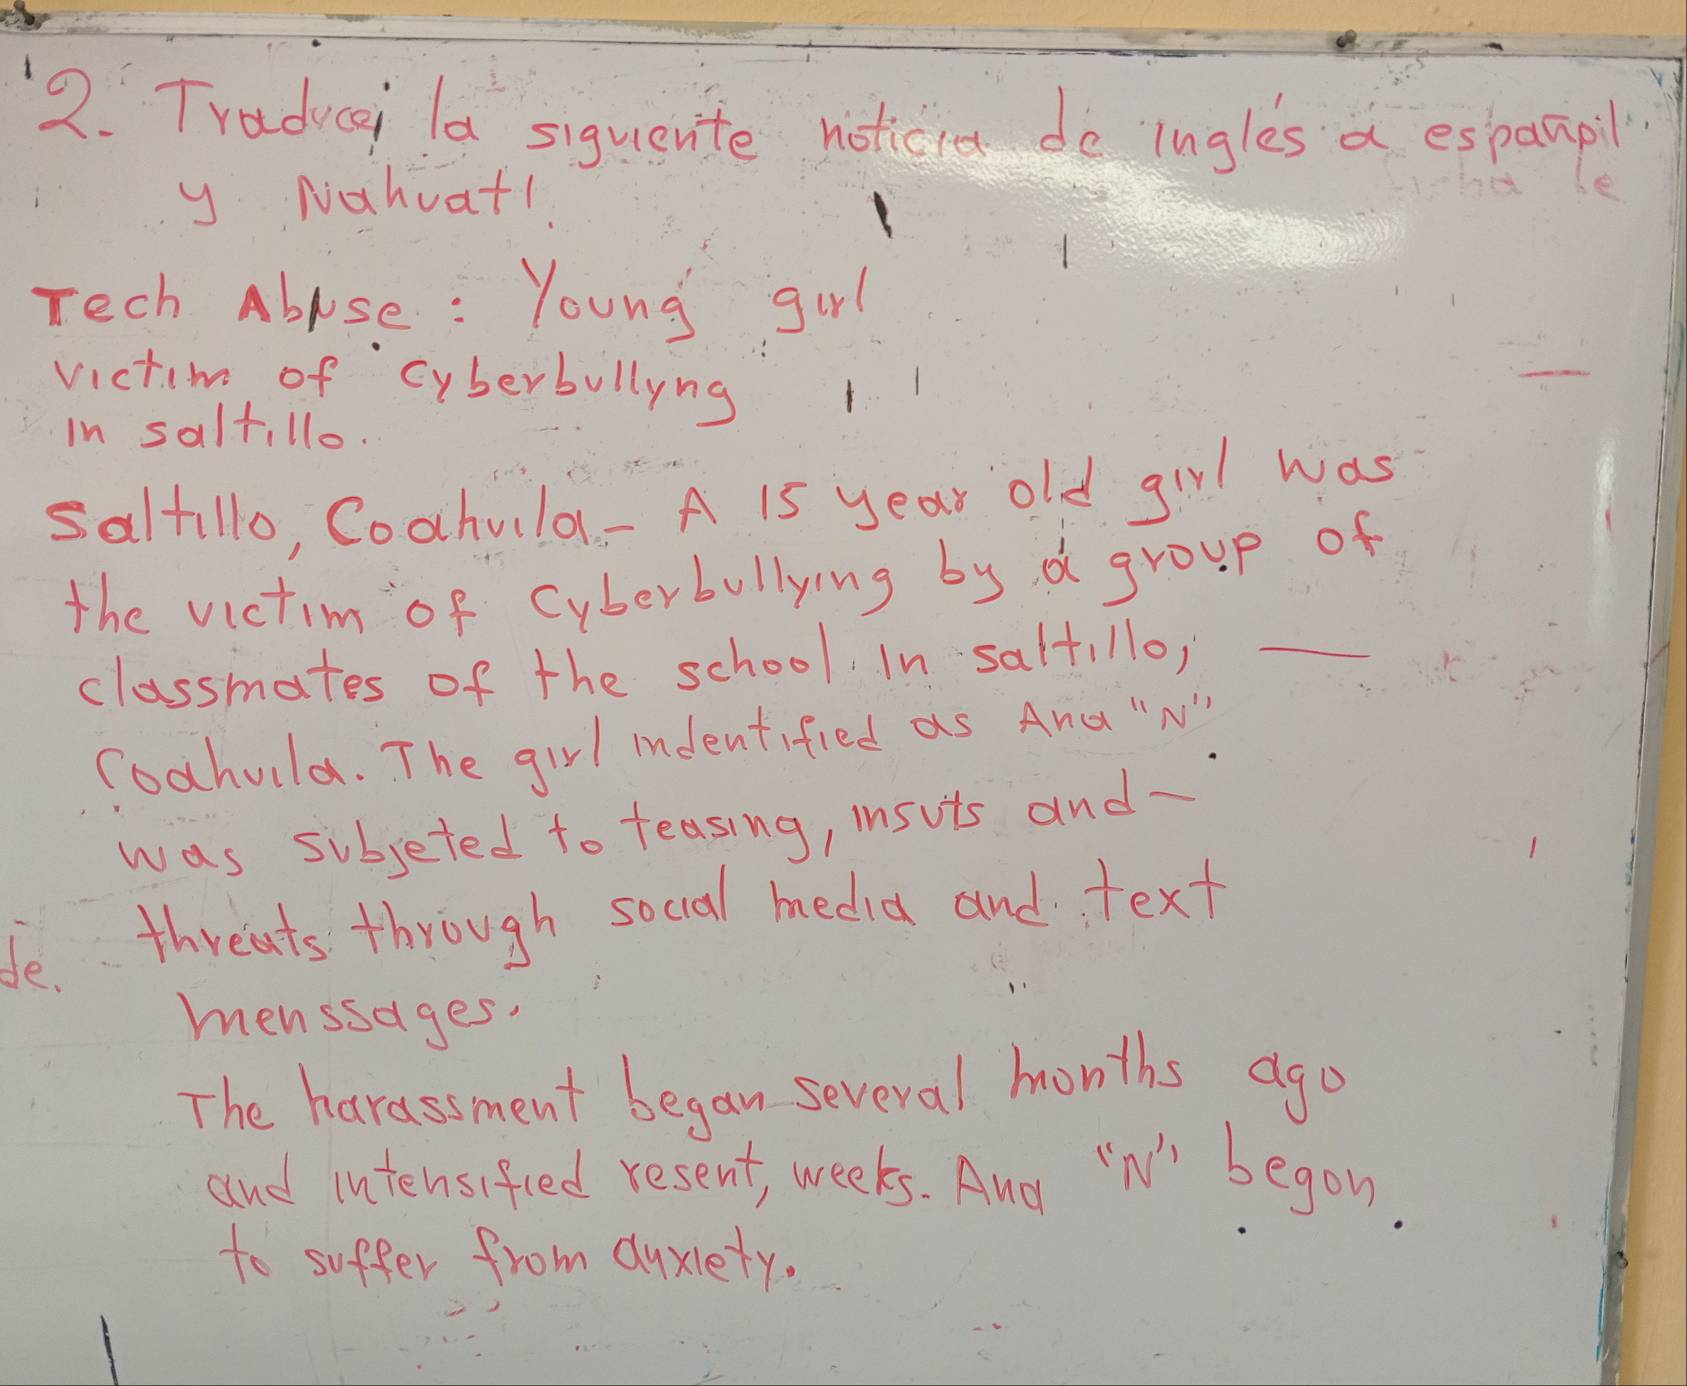 2. Traduce la siguiente noticia de inglés a español
y Nahuatl.
Tech Abuse: Young girl
victim of cyberbullyng
in saltillo.
Saltillo, Coahuila- A 15 year old girl was
the victim of cyberbullying by a group of
classmates of the school in saltillo,
Coahuila. The girl indentified as Ana "N"
was subjeted to teasing, insuts and
threats through social media and text
menssages.
The harassment began several months ago
and intensified resent, weeks. Ana "N" begon
to suffer from anxiety.
de.